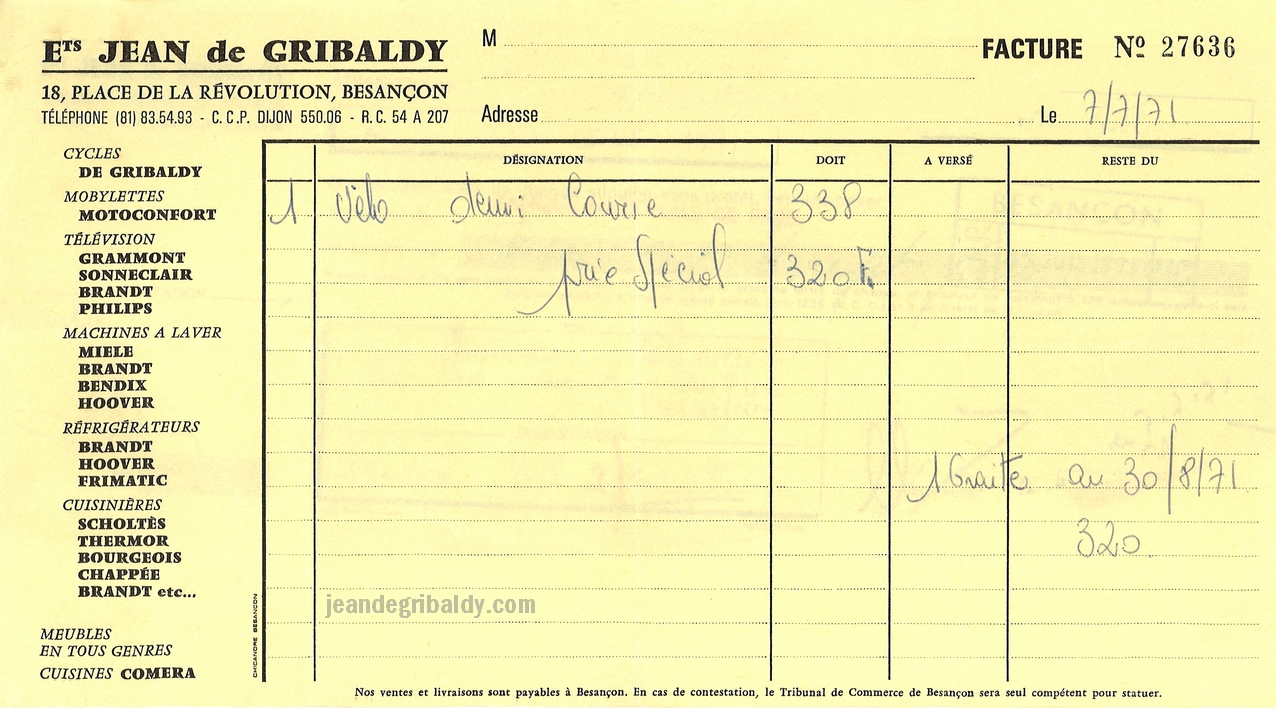 Ets JEAN de GRIBALDY
18, PLACE DE LA RÉVOLUTION, BESANÇON
TÉLÉPHONE (81) 83.54.93 - C.C.P. DIJON 550.06 - R.C. 54 A 207
M
Adresse
FACTURE Nº 27636
Le 7/7/71
CYCLES
DE GRIBALDY
MOBYLETTES
MOTOCONFORT
TÉLÉVISION
GRAMMONT
SONNECLAIR
BRANDT
PHILIPS
MACHINES A LAVER
MIELE
BRANDT
BENDIX
HOOVER
RÉFRIGÉRATEURS
BRANDT
HOOVER
FRIMATIC
CUISINIÈRES
SCHOLTÈS
THERMOR
BOURGEOIS
CHAPPÉE
BRANDT etc...
MEUBLES
EN TOUS GENRES
CUISINES COMERA
CHICANDRE BESANCON
DÉSIGNATION DOIT A VERSÉ RESTE DU
1 Vélo demi Course 338
prix Spécial 320 F
1 traite au 30/8/71
320
jeandegribaldy.com
Nos ventes et livraisons sont payables à Besançon. En cas de contestation, le Tribunal de Commerce de Besançon sera seul compétent pour statuer.